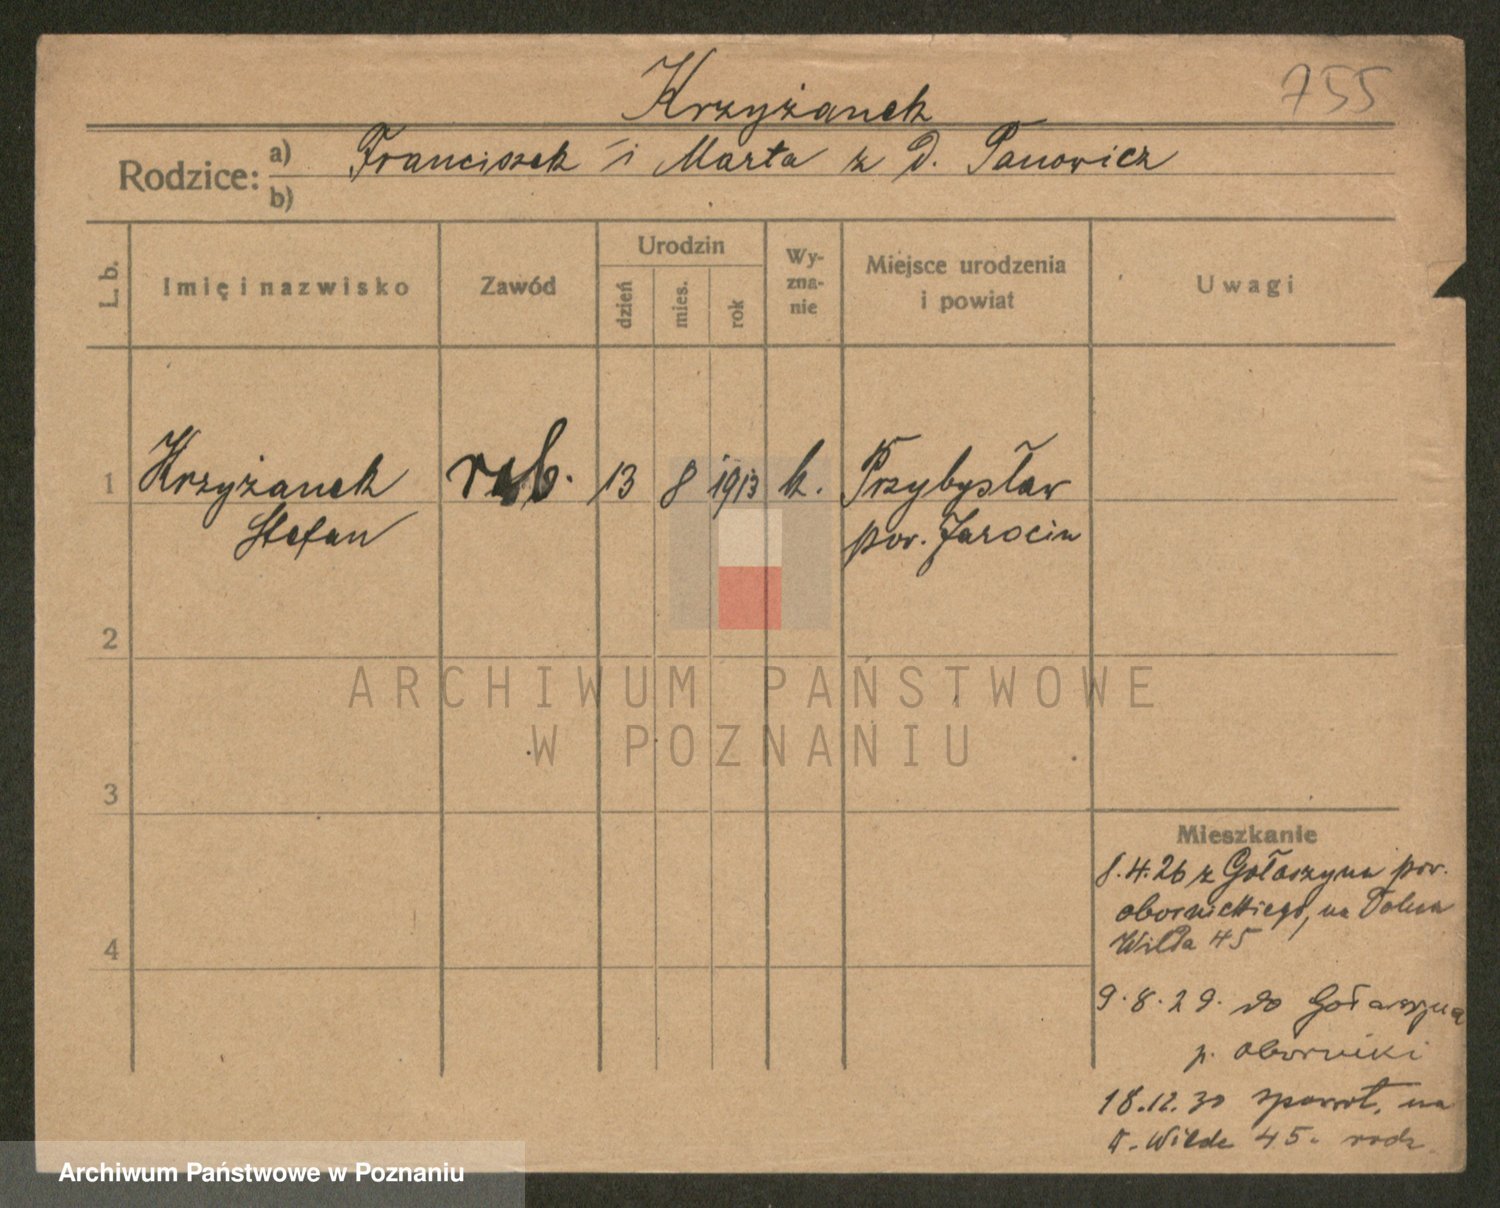 755
Krzyżanek
Rodzice: a) Franciszek i Marta z d. Panowicz
b)
L. b. Imię i nazwisko Zawód Urodzin dzień mies. rok Wy-zna-nie Miejsce urodzenia i powiat Uwagi
1 Krzyżanek rob. 13 8 1913 k. Przybysław
Stefan pow. Jarocin
2
3
4
Mieszkanie
8.4.26 z Gołaszyna pow.
obornickiego, na Dolna
Wilda 45
9.8.29. do Gołaszyna
p. Oborniki
18.12.30 spowrot. na
D. Wilde 45. rodz.
ARCHIWUM PAŃSTWOWE
W POZNANIU
Archiwum Państwowe w Poznaniu